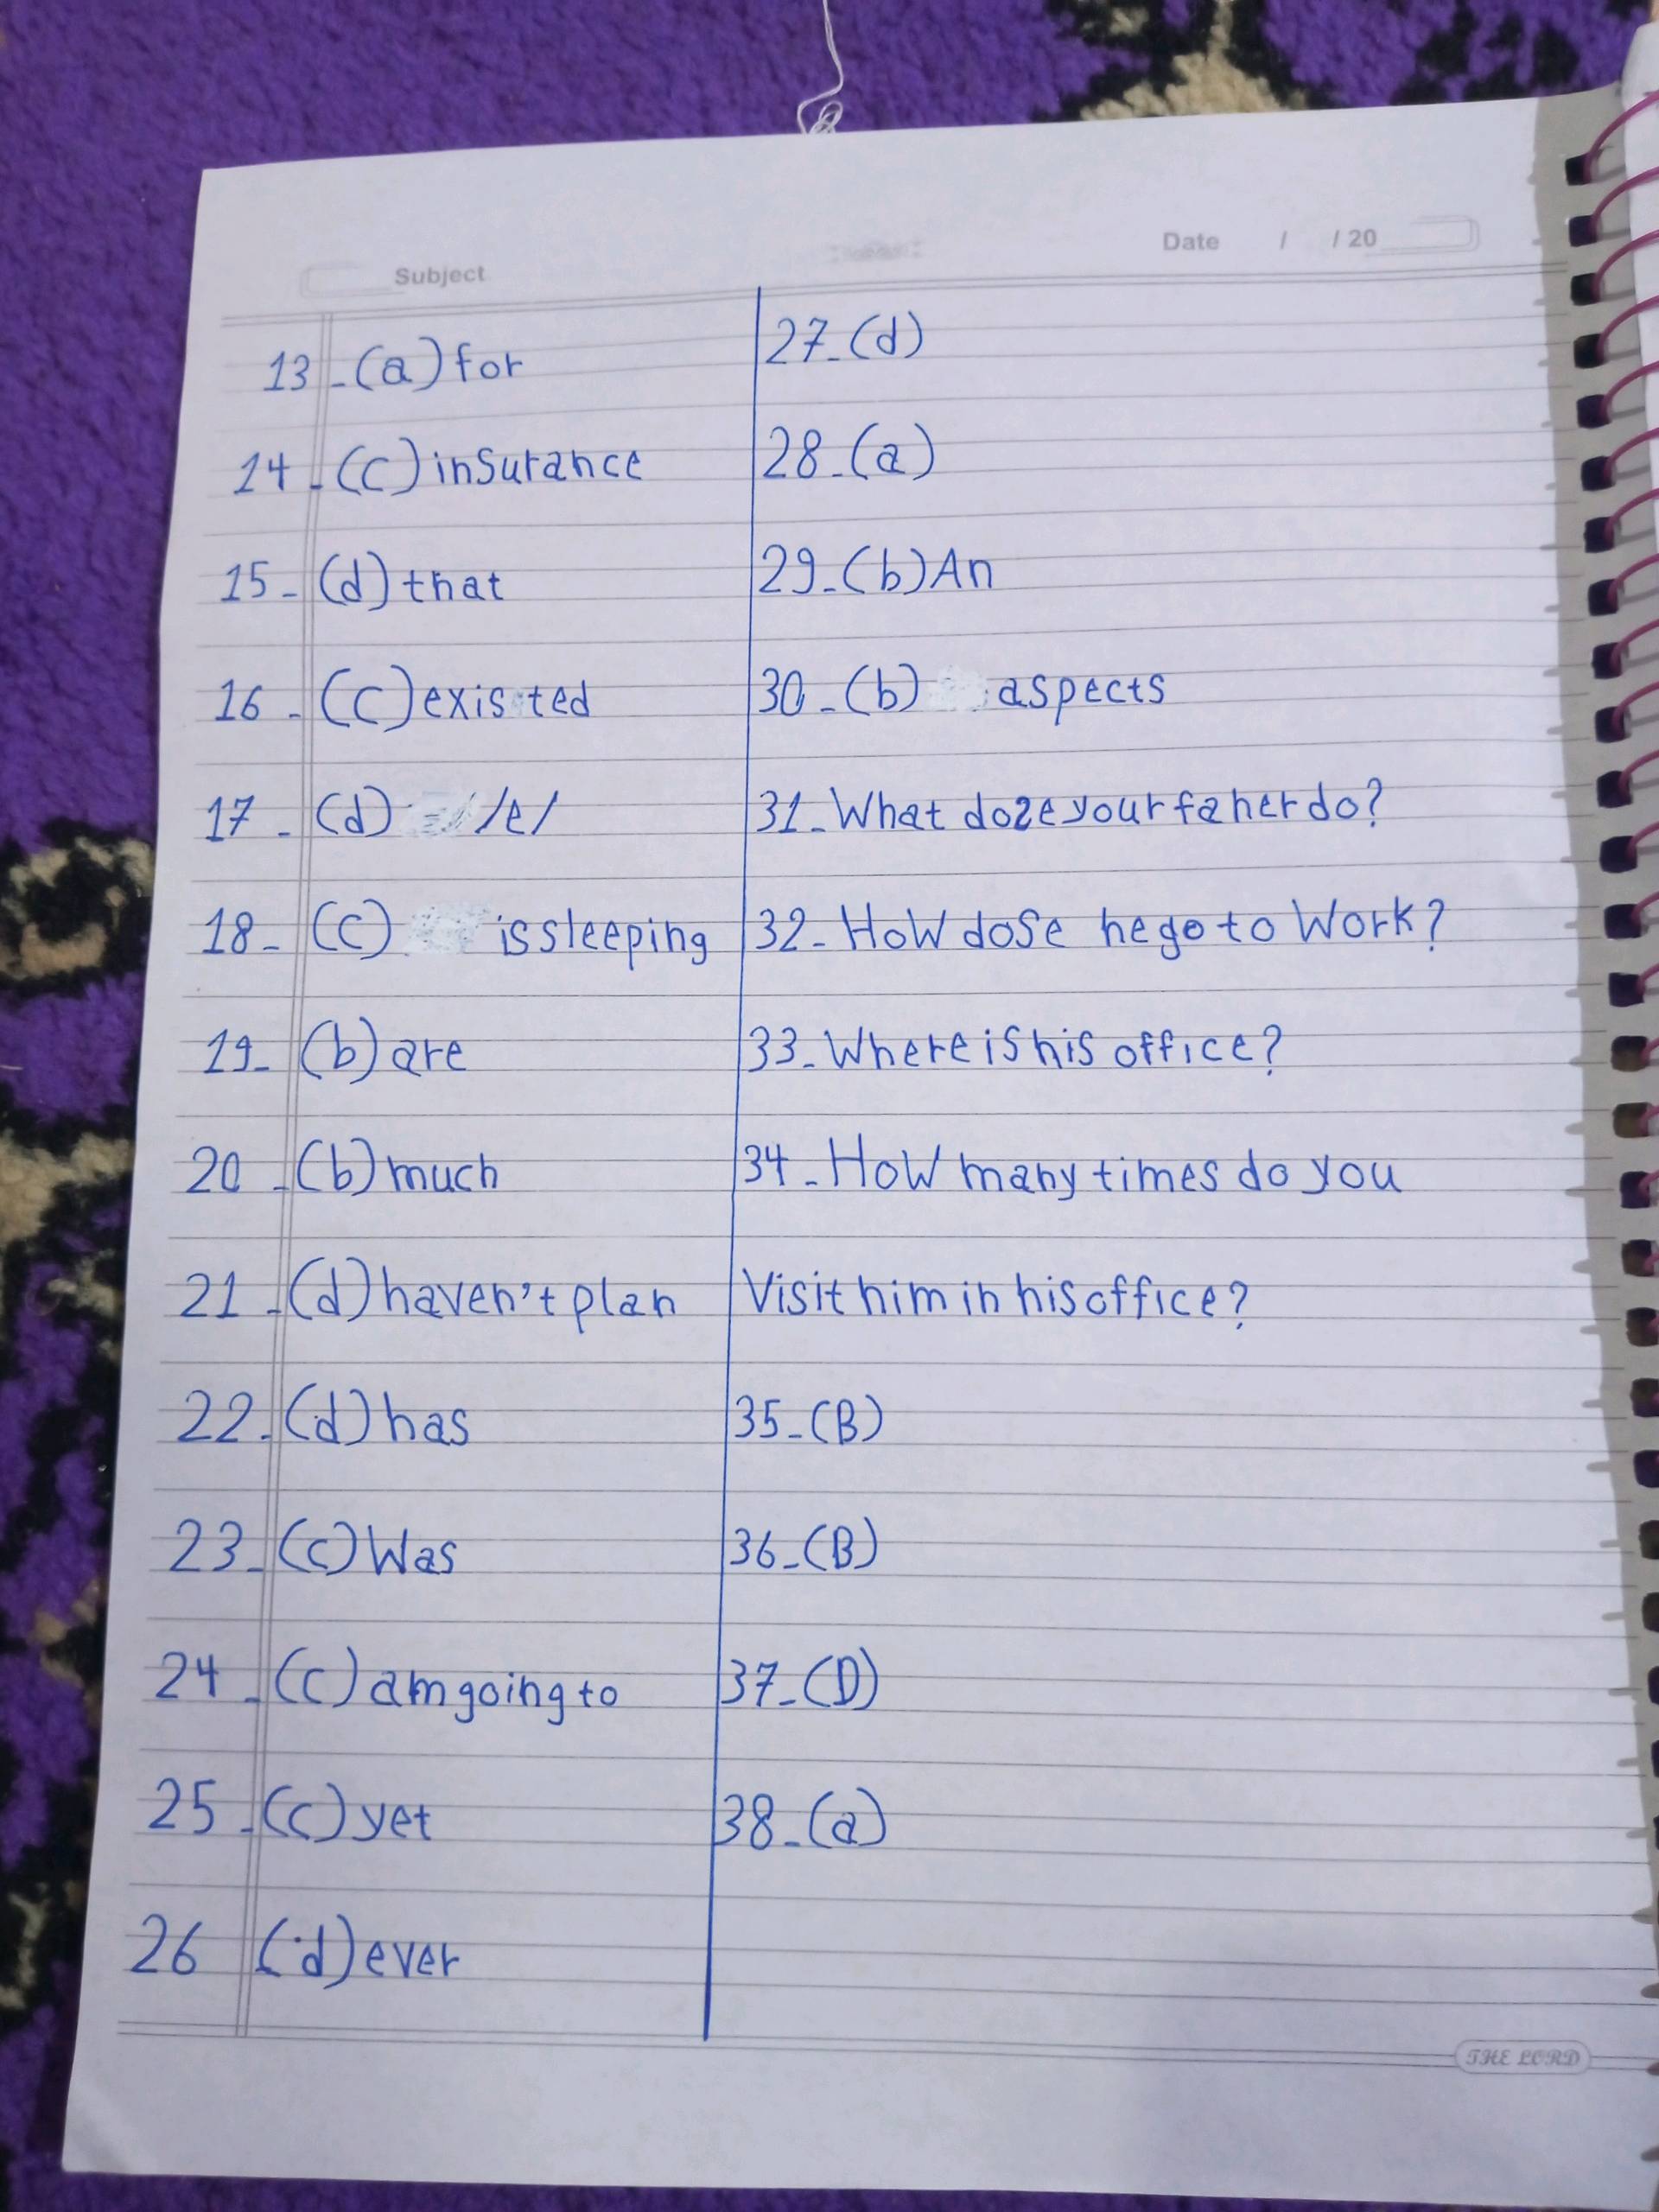 Subject
Date / / 20
13 - (a) for
14 - (c) insurance
15 - (d) that
16 - (c) existed
17 - (d) /e/
18 - (c) is sleeping
19 - (b) are
20 - (b) much
21 - (d) haven't plan
22 - (d) has
23 - (c) Was
24 - (c) am going to
25 - (c) yet
26 (d) ever
27 - (d)
28 - (a)
29 - (b) An
30 - (b) aspects
31 - What doze your faher do?
32 - How dose he go to Work?
33 - Where is his office?
34 - How many times do you
Visit him in his office?
35 - (B)
36 - (B)
37 - (D)
38 - (a)
THE LORD